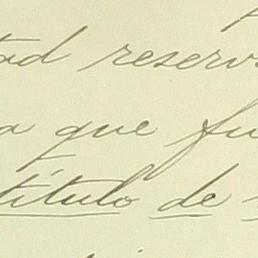 tad reserv
a que fu
título de